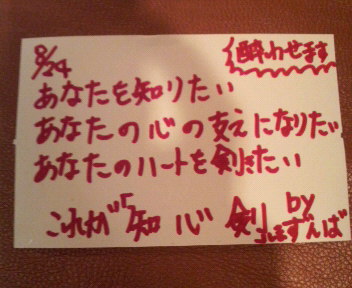 8/24
酔わせます
あなたを知りたい
あなたの心の支えになりたい
あなたのハートを剣きたい
これが「知 心 剣 by